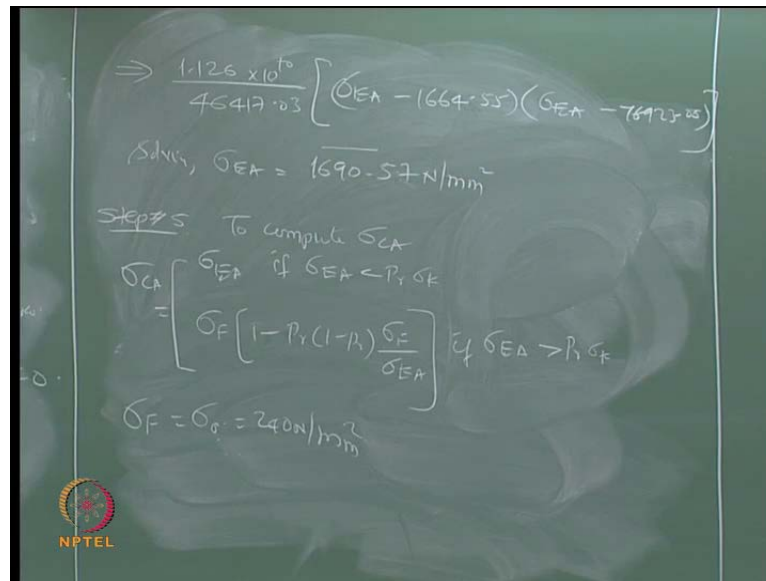 ⇒ 1.126 × 10^10 / 46417.03 [(σEA − 1664.55)(σEA − 76923.05)]
Solvin, σEA = 1690.57 N/mm²
Step# 5 To compute σCA
σCA = [ σEA if σEA < Pr σF
σF [1 − Pr (1 − Pr) σF / σEA] if σEA > Pr σF
=0.
σF = σo = 240 N/mm²
NPTEL